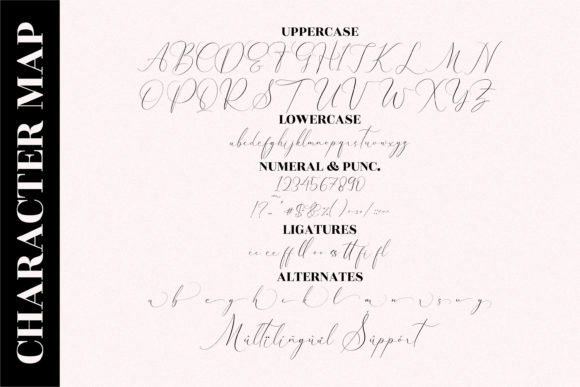 CHARACTER MAP
UPPERCASE
ABCDEFGHIJKLMN
OPQRSTUVWXYZ
LOWERCASE
abcdefghijklmnopqrstuvwxyz
NUMERAL & PUNC.
1234567890
LIGATURES
ff ll oo ss tt fi fl
ALTERNATES
Múltilíngüál Šúppórt